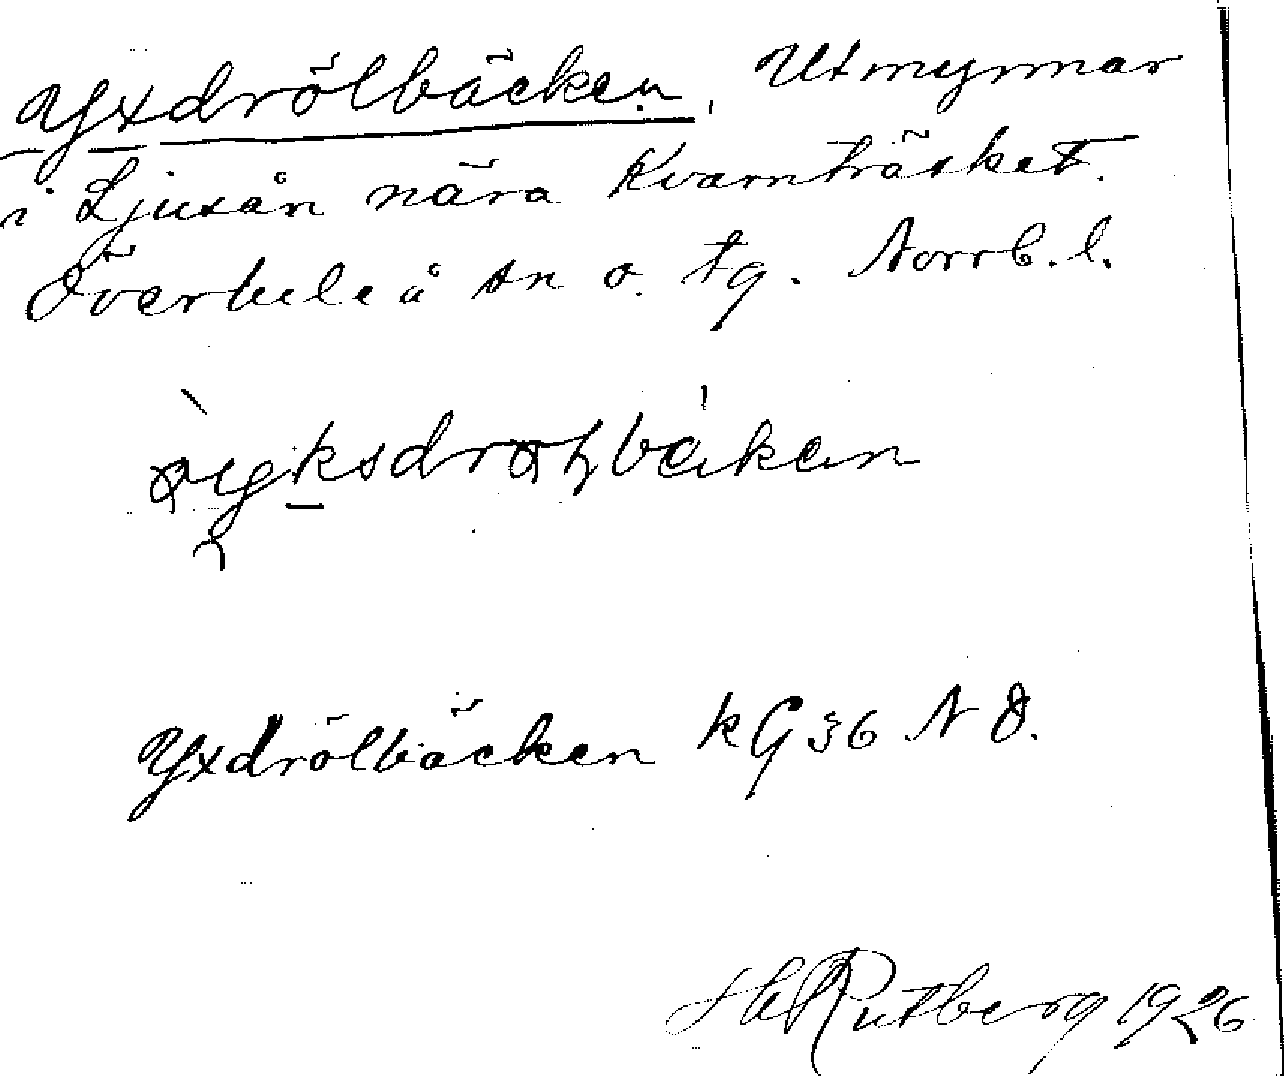 Yxdrölbäcken, Utmynnar
i Ljusån nära Kvarnträsket.
Överluleå sn o. tg. Norrb. l.
Yxdrölbäcken kG 36 NÖ.
Rutberg 1926